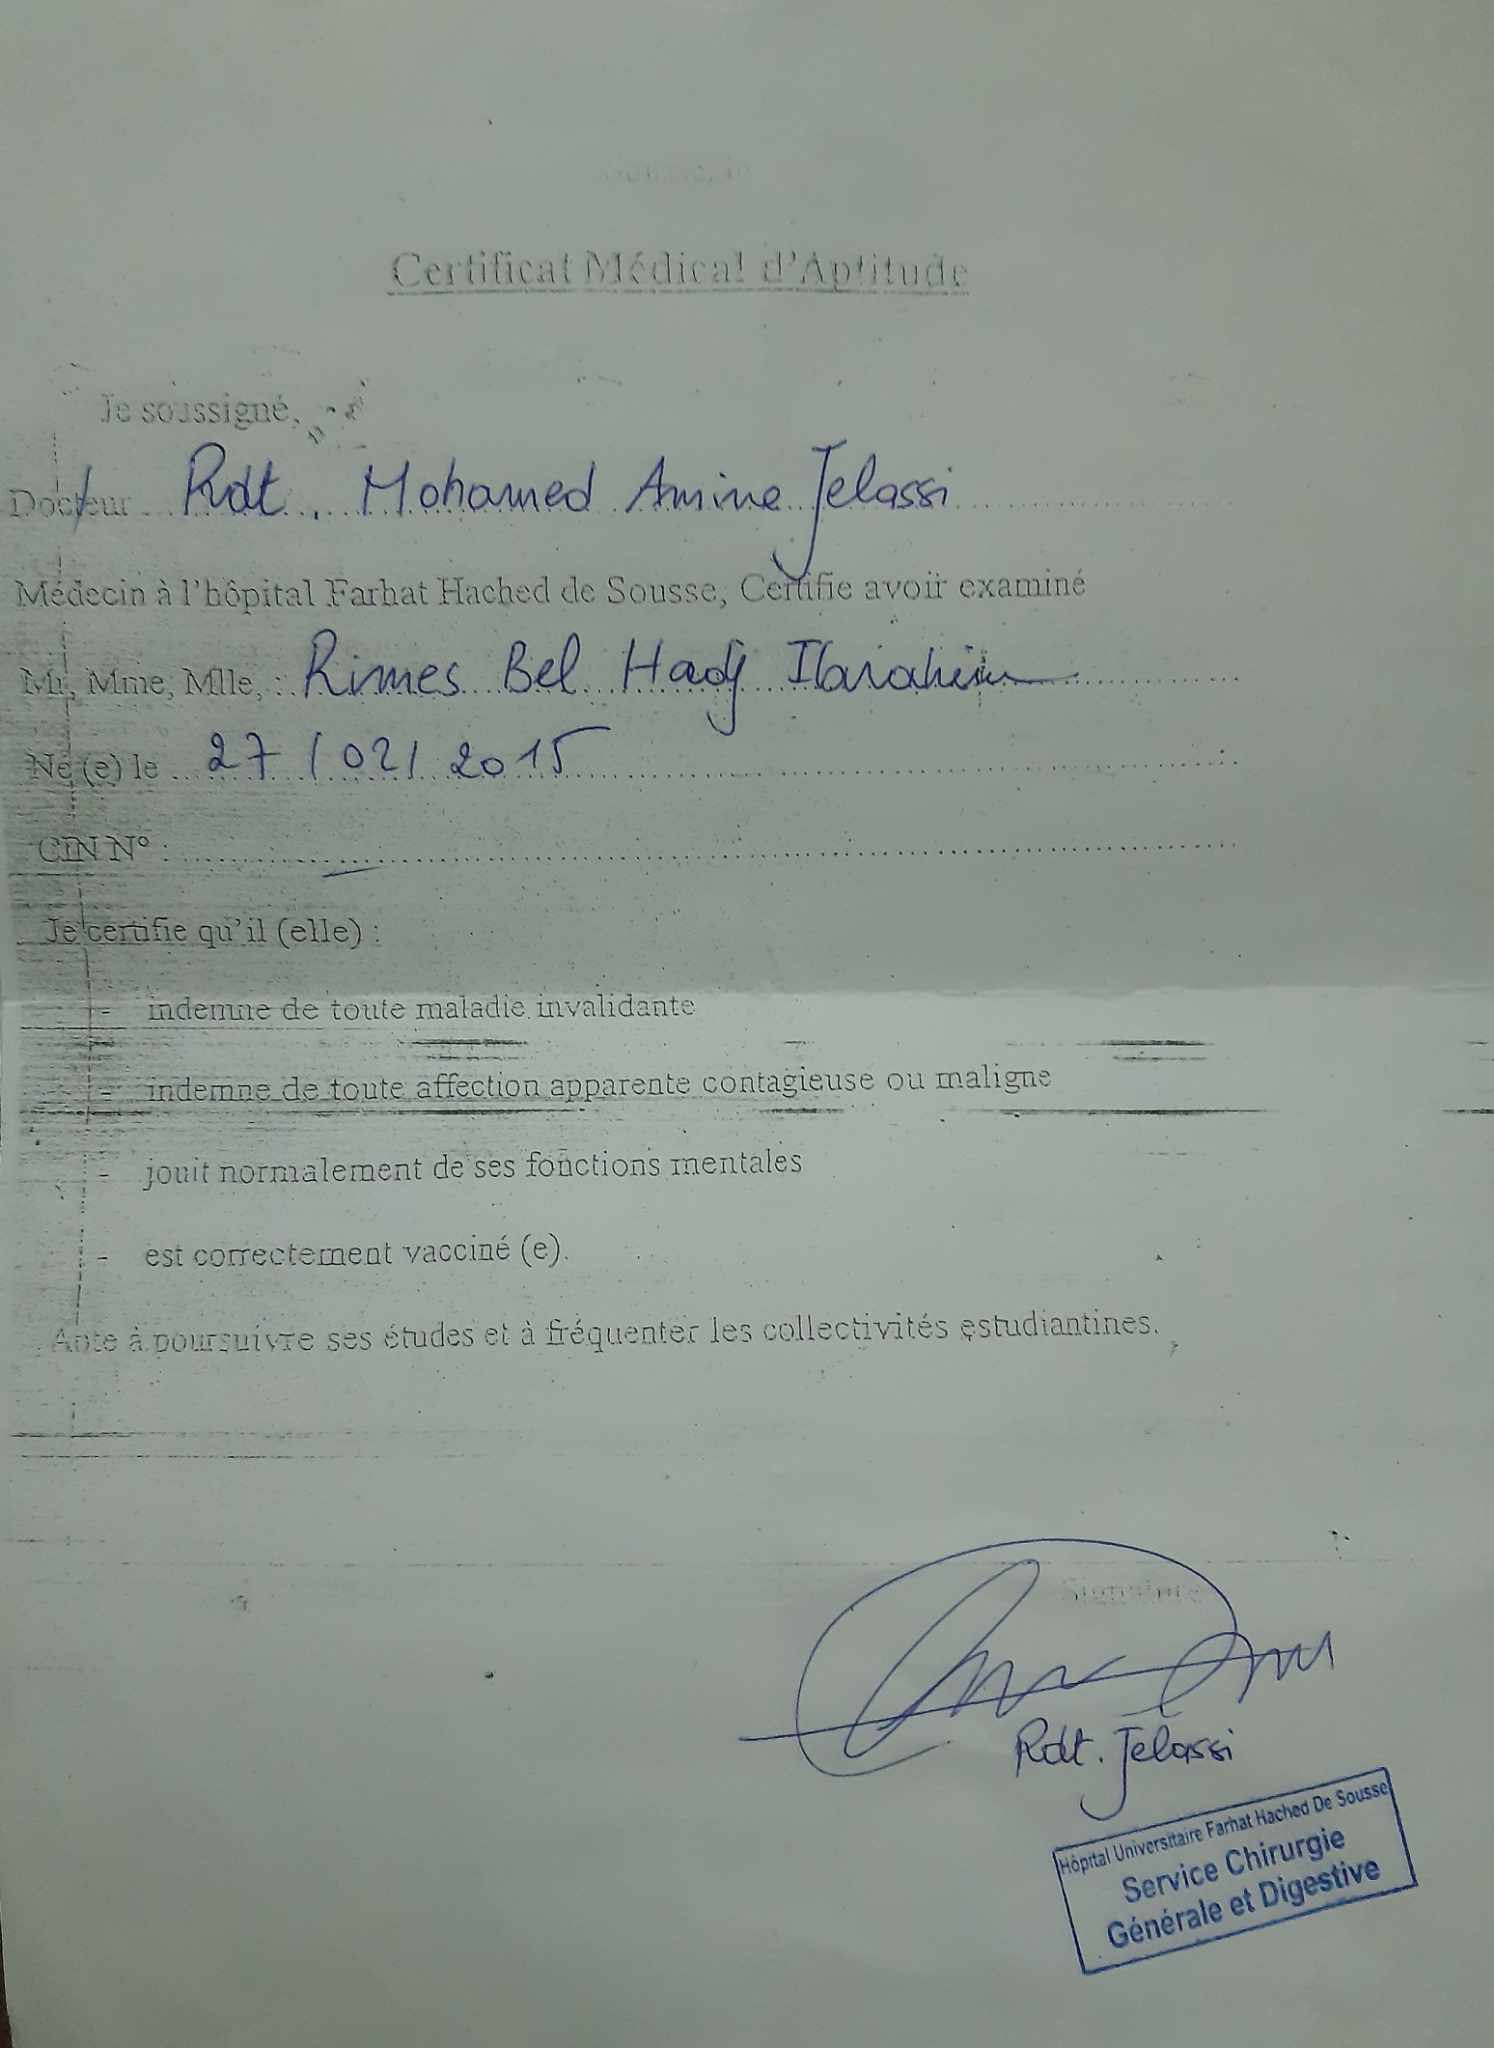 Certificat Médical d'Aptitude
Je soussigné,
Docteur Rdt. Mohamed Amine Jelassi
Médecin à l'hôpital Farhat Hached de Sousse, Certifie avoir examiné
Mr, Mme, Mlle, : Rimes Bel Hadj Ibrahim
Né (e) le 27/02/2015
CIN N° :
Je certifie qu'il (elle) :
- indemne de toute maladie invalidante
- indemne de toute affection apparente contagieuse ou maligne
- jouit normalement de ses fonctions mentales
- est correctement vacciné (e).
Apte à poursuivre ses études et à fréquenter les collectivités estudiantines.
Signature
Rdt. Jelassi
Hôpital Universitaire Farhat Hached De Sousse
Service Chirurgie
Générale et Digestive